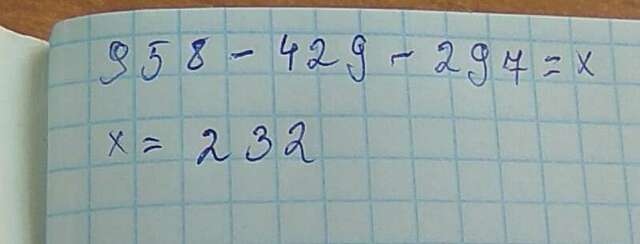 958 - 429 - 297 = x
x = 232